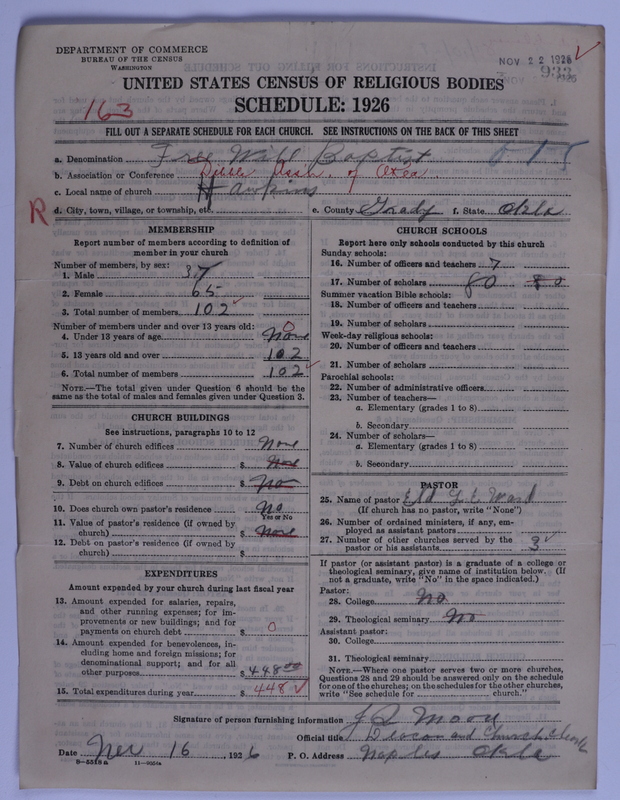 DEPARTMENT OF COMMERCE
BUREAU OF THE CENSUS
WASHINGTON
NOV 22 1926
933
UNITED STATES CENSUS OF RELIGIOUS BODIES
SCHEDULE: 1926
163
FILL OUT A SEPARATE SCHEDULE FOR EACH CHURCH. SEE INSTRUCTIONS ON THE BACK OF THIS SHEET
a. Denomination Free Will Baptist
b. Association or Conference Dibble Assn. of Okla
c. Local name of church Hawkins
R
d. City, town, village, or township, etc.
e. County Grady f. State Okla
MEMBERSHIP
Report number of members according to definition of member in your church
Number of members, by sex:
1. Male 37
2. Female 65
3. Total number of members 102
Number of members under and over 13 years old:
4. Under 13 years of age None 0
5. 13 years old and over 102
6. Total number of members 102
NOTE.—The total given under Question 6 should be the same as the total of males and females given under Question 3.
CHURCH BUILDINGS
See instructions, paragraphs 10 to 12
7. Number of church edifices None
8. Value of church edifices $ None
9. Debt on church edifices $ Non
10. Does church own pastor's residence No
Yes or No
11. Value of pastor's residence (if owned by church) $ None
12. Debt on pastor's residence (if owned by church) $
EXPENDITURES
Amount expended by your church during last fiscal year
13. Amount expended for salaries, repairs, and other running expenses; for improvements or new buildings; and for payments on church debt $ 0
14. Amount expended for benevolences, including home and foreign missions; for denominational support; and for all other purposes $ 448.00
15. Total expenditures during year $ 448
CHURCH SCHOOLS
Report here only schools conducted by this church
Sunday schools:
16. Number of officers and teachers 7
17. Number of scholars 80 80
Summer vacation Bible schools:
18. Number of officers and teachers
19. Number of scholars
Week-day religious schools:
20. Number of officers and teachers
21. Number of scholars
Parochial schools:
22. Number of administrative officers
23. Number of teachers—
a. Elementary (grades 1 to 8)
b. Secondary
24. Number of scholars—
a. Elementary (grades 1 to 8)
b. Secondary
PASTOR
25. Name of pastor Eld L. E. Ward
(If church has no pastor, write "None")
26. Number of ordained ministers, if any, employed as assistant pastors
27. Number of other churches served by the pastor or his assistants 3
If pastor (or assistant pastor) is a graduate of a college or theological seminary, give name of institution below. (If not a graduate, write "No" in the space indicated.)
Pastor:
28. College No
29. Theological seminary No
Assistant pastor:
30. College
31. Theological seminary
NOTE.—Where one pastor serves two or more churches, Questions 28 and 29 should be answered only on the schedule for one of the churches; on the schedules for the other churches, write "See schedule for church."
Signature of person furnishing information
Official title Deacon and Church Clerk
Date Nov 16, 1926 P. O. Address Naples Okla
8—5518a 11—9034a